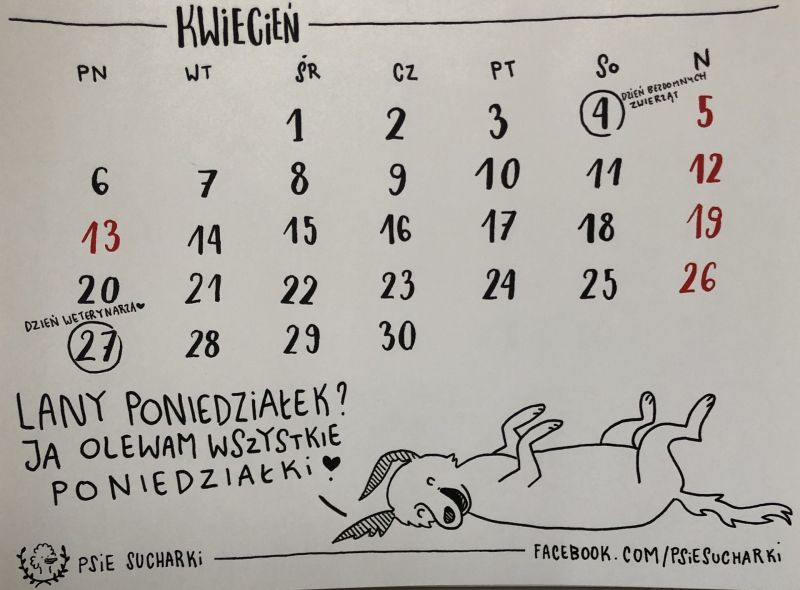 KWIECIEŃ
PN WT ŚR CZ PT So N
1 2 3 4 DZIEŃ BEZDOMNYCH ZWIERZĄT 5
6 7 8 9 10 11 12
13 14 15 16 17 18 19
20 21 22 23 24 25 26
DZIEŃ WETERYNARZA♥
27 28 29 30
LANY PONIEDZIAŁEK?
JA OLEWAM WSZYSTKIE
PONIEDZIAŁKI ♥
PSIE SUCHARKI FACEBOOK.COM/PSIESUCHARKI